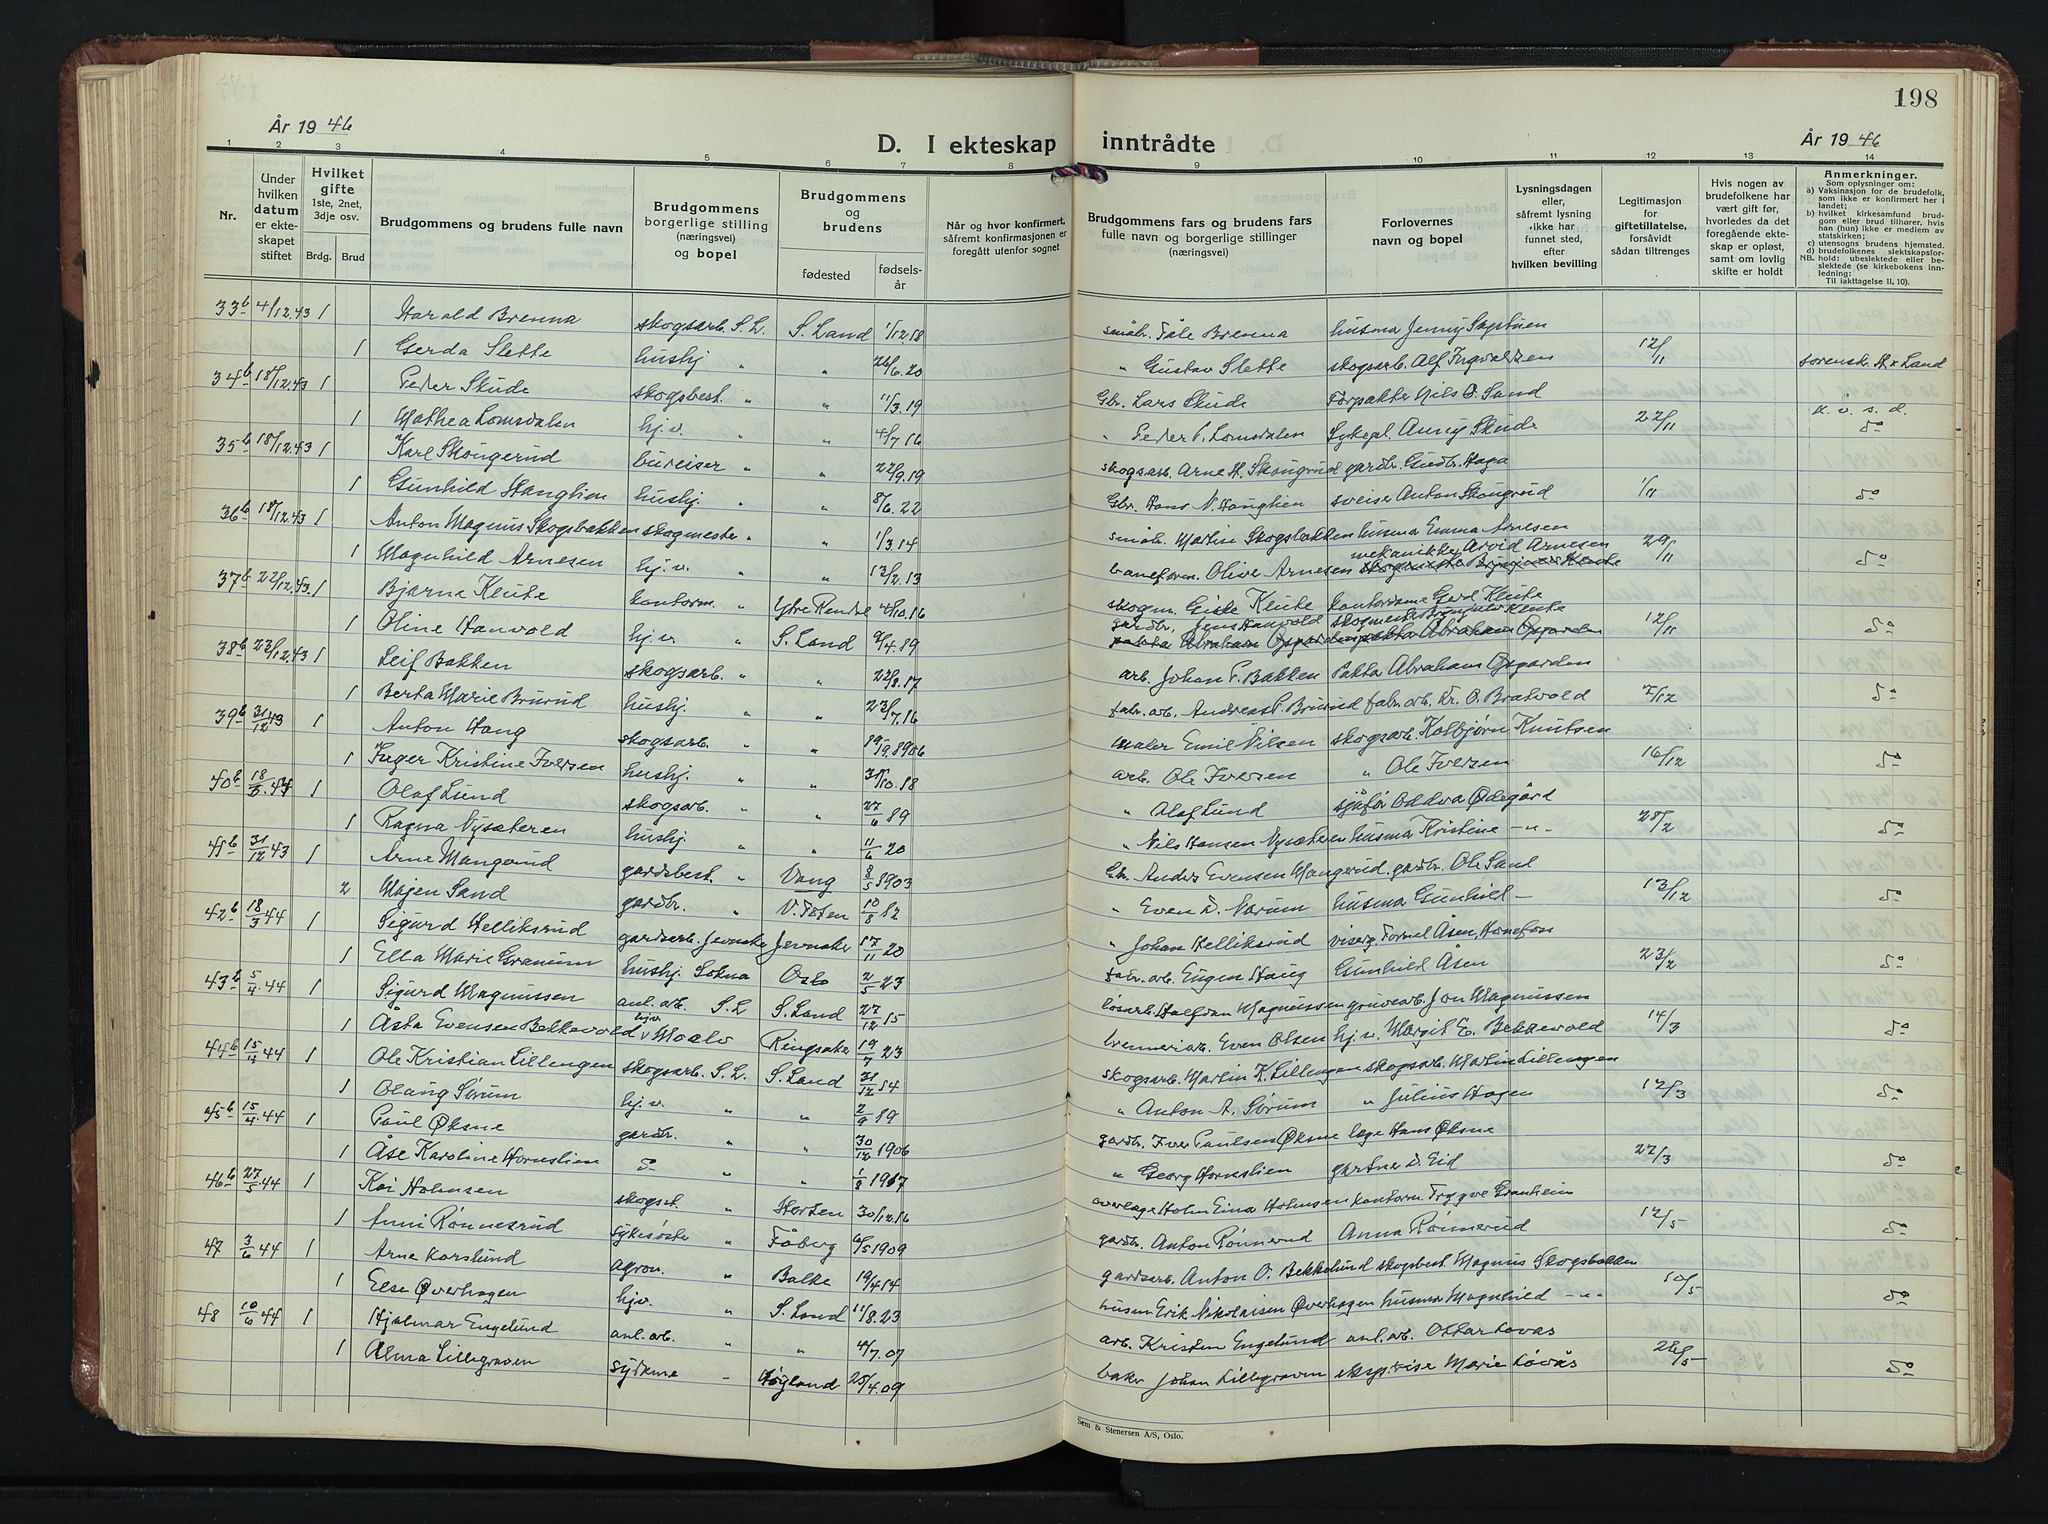 198
År 1946
D. I ekteskap inntrådte
År 1946
1 2 3 4 5 6 7 8 9 10 11 12 13 14
Nr.
Under hvilken datum er ekteskapet stiftet
Hvilket gifte 1ste, 2net, 3dje osv.
Brdg. Brud
Brudgommens og brudens fulle navn
Brudgommens borgerlige stilling (næringsvei) og bopel
Brudgommens og brudens
fødested
fødselsår
Når og hvor konfirmert, såfremt konfirmasjonen er foregått utenfor sognet
Brudgommens fars og brudens fars fulle navn og borgerlige stillinger (næringsvei)
Forlovernes navn og bopel
Lysningsdagen eller, såfremt lysning ikke har funnet sted, efter hvilken bevilling
Legitimasjon for giftetillatelse, forsåvidt sådan tiltrenges
Hvis nogen av brudefolkene har vært gift før, hvorledes da det foregående ekteskap er opløst, samt om lovlig skifte er holdt
Anmerkninger.
Som oplysninger om:
a) Vaksinasjon for de brudefolk, som ikke er konfirmert her i landet;
b) hvilket kirkesamfund brudgom eller brud tilhører, hvis han (hun) ikke er medlem av statskirken;
c) utensogns brudens hjemsted.
d) brudefolkenes slektskapsforhold: ubeslektede eller beslektede (se kirkebokens innledning:
NB.
Til iakttagelse II, 10).
33b 4/12.43 1 Harald Brenna skogsarb. S.L. S. Land 1/12 18 småbr. Påle Brenna husmo Jenny Sagstuen
1 Gerda Slette hushj " " 26/6.20 " Gustav Slette skogsarb. Alf Ingvaldsen 12/11 sorensk. H. & Land
34b 18/12.43 1 Peder Skude skogsbest. " " 11/3.19 Gbr. Lars Skude Forpakter Nils O. Sand
1 Mathea Lomsdalen hj.v. " " 4/7 16 " Peder P. Lomsdalen Sykepl. Anny Skude 22/11 do
35b 18/12.43 1 Karl Skougerud bureiser " " 22/9.19 skogsarb. Arne H. Skougrud gardbr. Gudbr. Haga
1 Gunhild Hanglien hushj. " " 8/6.22 Gbr. Hans N. Hanglien sveiser Anton Skougrud 1/11 do
36b 18/12.43 1 Anton Magnus Skogsbakken skogmester " " 1/3.14 småbr. Martin Skogsbakken husmo Emma Arnesen
1 Magnhild Arnesen hj.v. " " 13/2.13 baneform. Oliver Arnesen mekaniker Arvid Arnesen 29/11 do
37b 22/12.43. 1 Bjarne Kleite kontorm. " Ytre Rendal 4/10.16 skogm. Kleite kontordame Gerd Kleite
1 Oline Hanvold hj.v. " S. Land 9/4.89 gardbr. Jens Hanvold 12/11 do
38b 22/12.43 1 Leif Bakken skogsarb. " " 22/8.17 arb. Johan P. Bakken Pakta Abraham Opgarden
1 Berta Marie Brurud hushj. " " 23/7.16 fabr.arb. Andreas P. Brurud fabr.arb. Kr. O. Bratvold 7/12 do
39b 31/12 43 1 Anton Hang skogsarb. " " maler Emil Nilsen skogsarb. Kolbjørn Knutsen
1 Inger Kristine Iversen hushj. " " 31/10.18 arb. Ole Iversen " Ole Iversen 16/12 do
40b 1 Olaf Lund skogsarb. " " 27/6 89 " Olaf Lund sjåfør Oddva Ødegård
1 Ragna Nysæteren hushj. " " 11/6 20 " Nils Hansen Nysæteren husmo Kristine –"– 28/2 do
41b 31/12 43 1 Arne Mangerud gardsbest. " Vang 8/5 1903 Gbr. Anders Evensen Mangerud gardbr. Ole Sand
2 Majen Sand gardbr. " V. Toten 10/8 82 " Even D. Narum husmo Gunhild – 13/12 do
42b 18/3 44 1 Sigurd Helliksrud gardsarb. Jevnaker Jevnaker 17/11 20 " Johan Helliksrud Åsen, Hønefoss
1 Ella Marie Granum hushj. Sokna Oslo 2/5 23 fabr.arb. Eugen Haug Gunhild Åsen 23/2 do
43b 5/4.44 1 Sigurd Magnussen anl.arb. S.L. S. Land 27/12 15 løsarb. Halfdan Magnussen gruvearb. Jon Magnussen
1 Åsta Evensen Bekkevold hj.v. Moelv Ringsaker 19/7 23 brenneriarb. Even Olsen hj.v. Margit E. Bekkevold 14/3 do
44b 15/4 44 1 Ole Kristian Lillengen skogsarb. S.L. S. Land 31/12 14 skogsarb. Martin K. Lillengen skogsarb. Martin Lillengen
1 Olaug Sørum hj.v. " " 2/9 89 " Anton A. Sørum " Julius Hagen 12/3 do
45b 15/4.44 1 Paul Øksne gardbr. " " 30/12 1906 gardbr. Iver Paulsen Øksne lege Hans Øksne
1 Åse Karoline Hornslien do " " 1/8 1917 " Georg Hornslien gartner D. Eid 27/3 do
46b 27/5.44 1 Kai Holmsen " Horten 30/12.16 overlege Holm Eina Holmsen kontorm. Trygve Granheim
1 Anni Rønnesrud sykesøster " Fåberg 6/5 1909 gardbr. Anton Rønnerud Anna Rønnerud 12/5 do
47 3/6 44 1 Arne Karslund agron. " Balke 19/4 14 gardsarb. Anton O. Bekkelund skogsbest. Magnus Skogsbakken
1 Else Øverhagen hjv. " S. Land 11/8.23 husm. Erik Nikolaisen Øverhagen husmo Magnhild –"– 10/5 do
48 10/6 44 1 Hjalmar Engelund anl.arb. " " 4/7.07 arb. Kristen Engelund anl.arb. Ottar Løvås
1 Alma Lillegraven sydame – Høyland 25/4.09 baker Johan Lillegraven eksp.trise Marie Løvås 26/5 do
Sem & Stenersen A/S, Oslo.